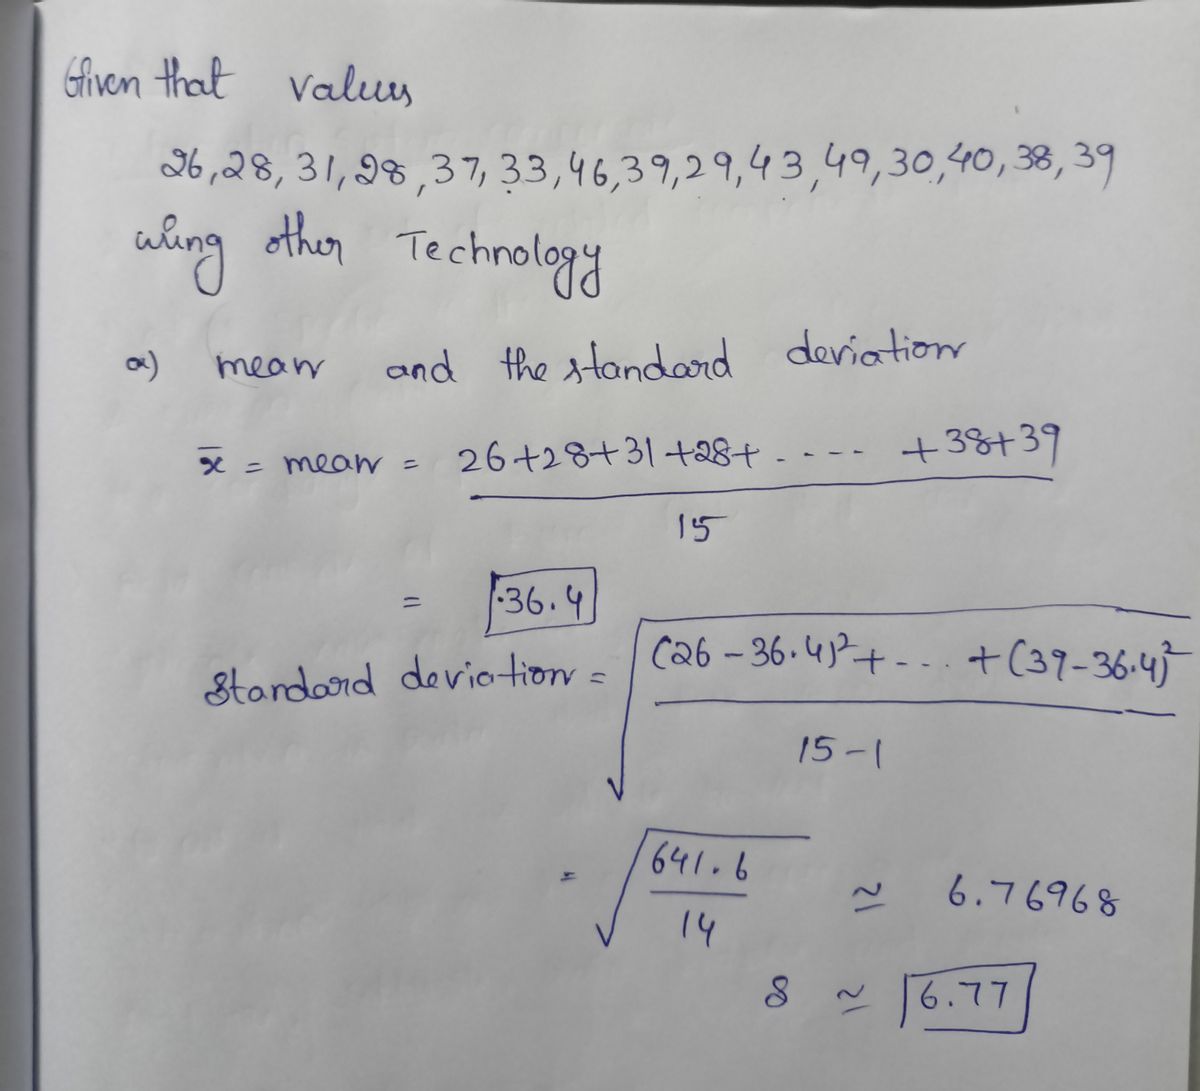 Given that values
26, 28, 31, 28, 37, 33, 46, 39, 29, 43, 49, 30, 40, 38, 39
using other Technology
a) mean and the standard deviation
x̄ = mean = 26+28+31+28+ ..... +38+39
15
= 36.4
Standard deviation = √ (26-36.4)²+ .... + (39-36.4)²
15-1
= √ 641.6 ≃ 6.76968
14
s ≃ 6.77